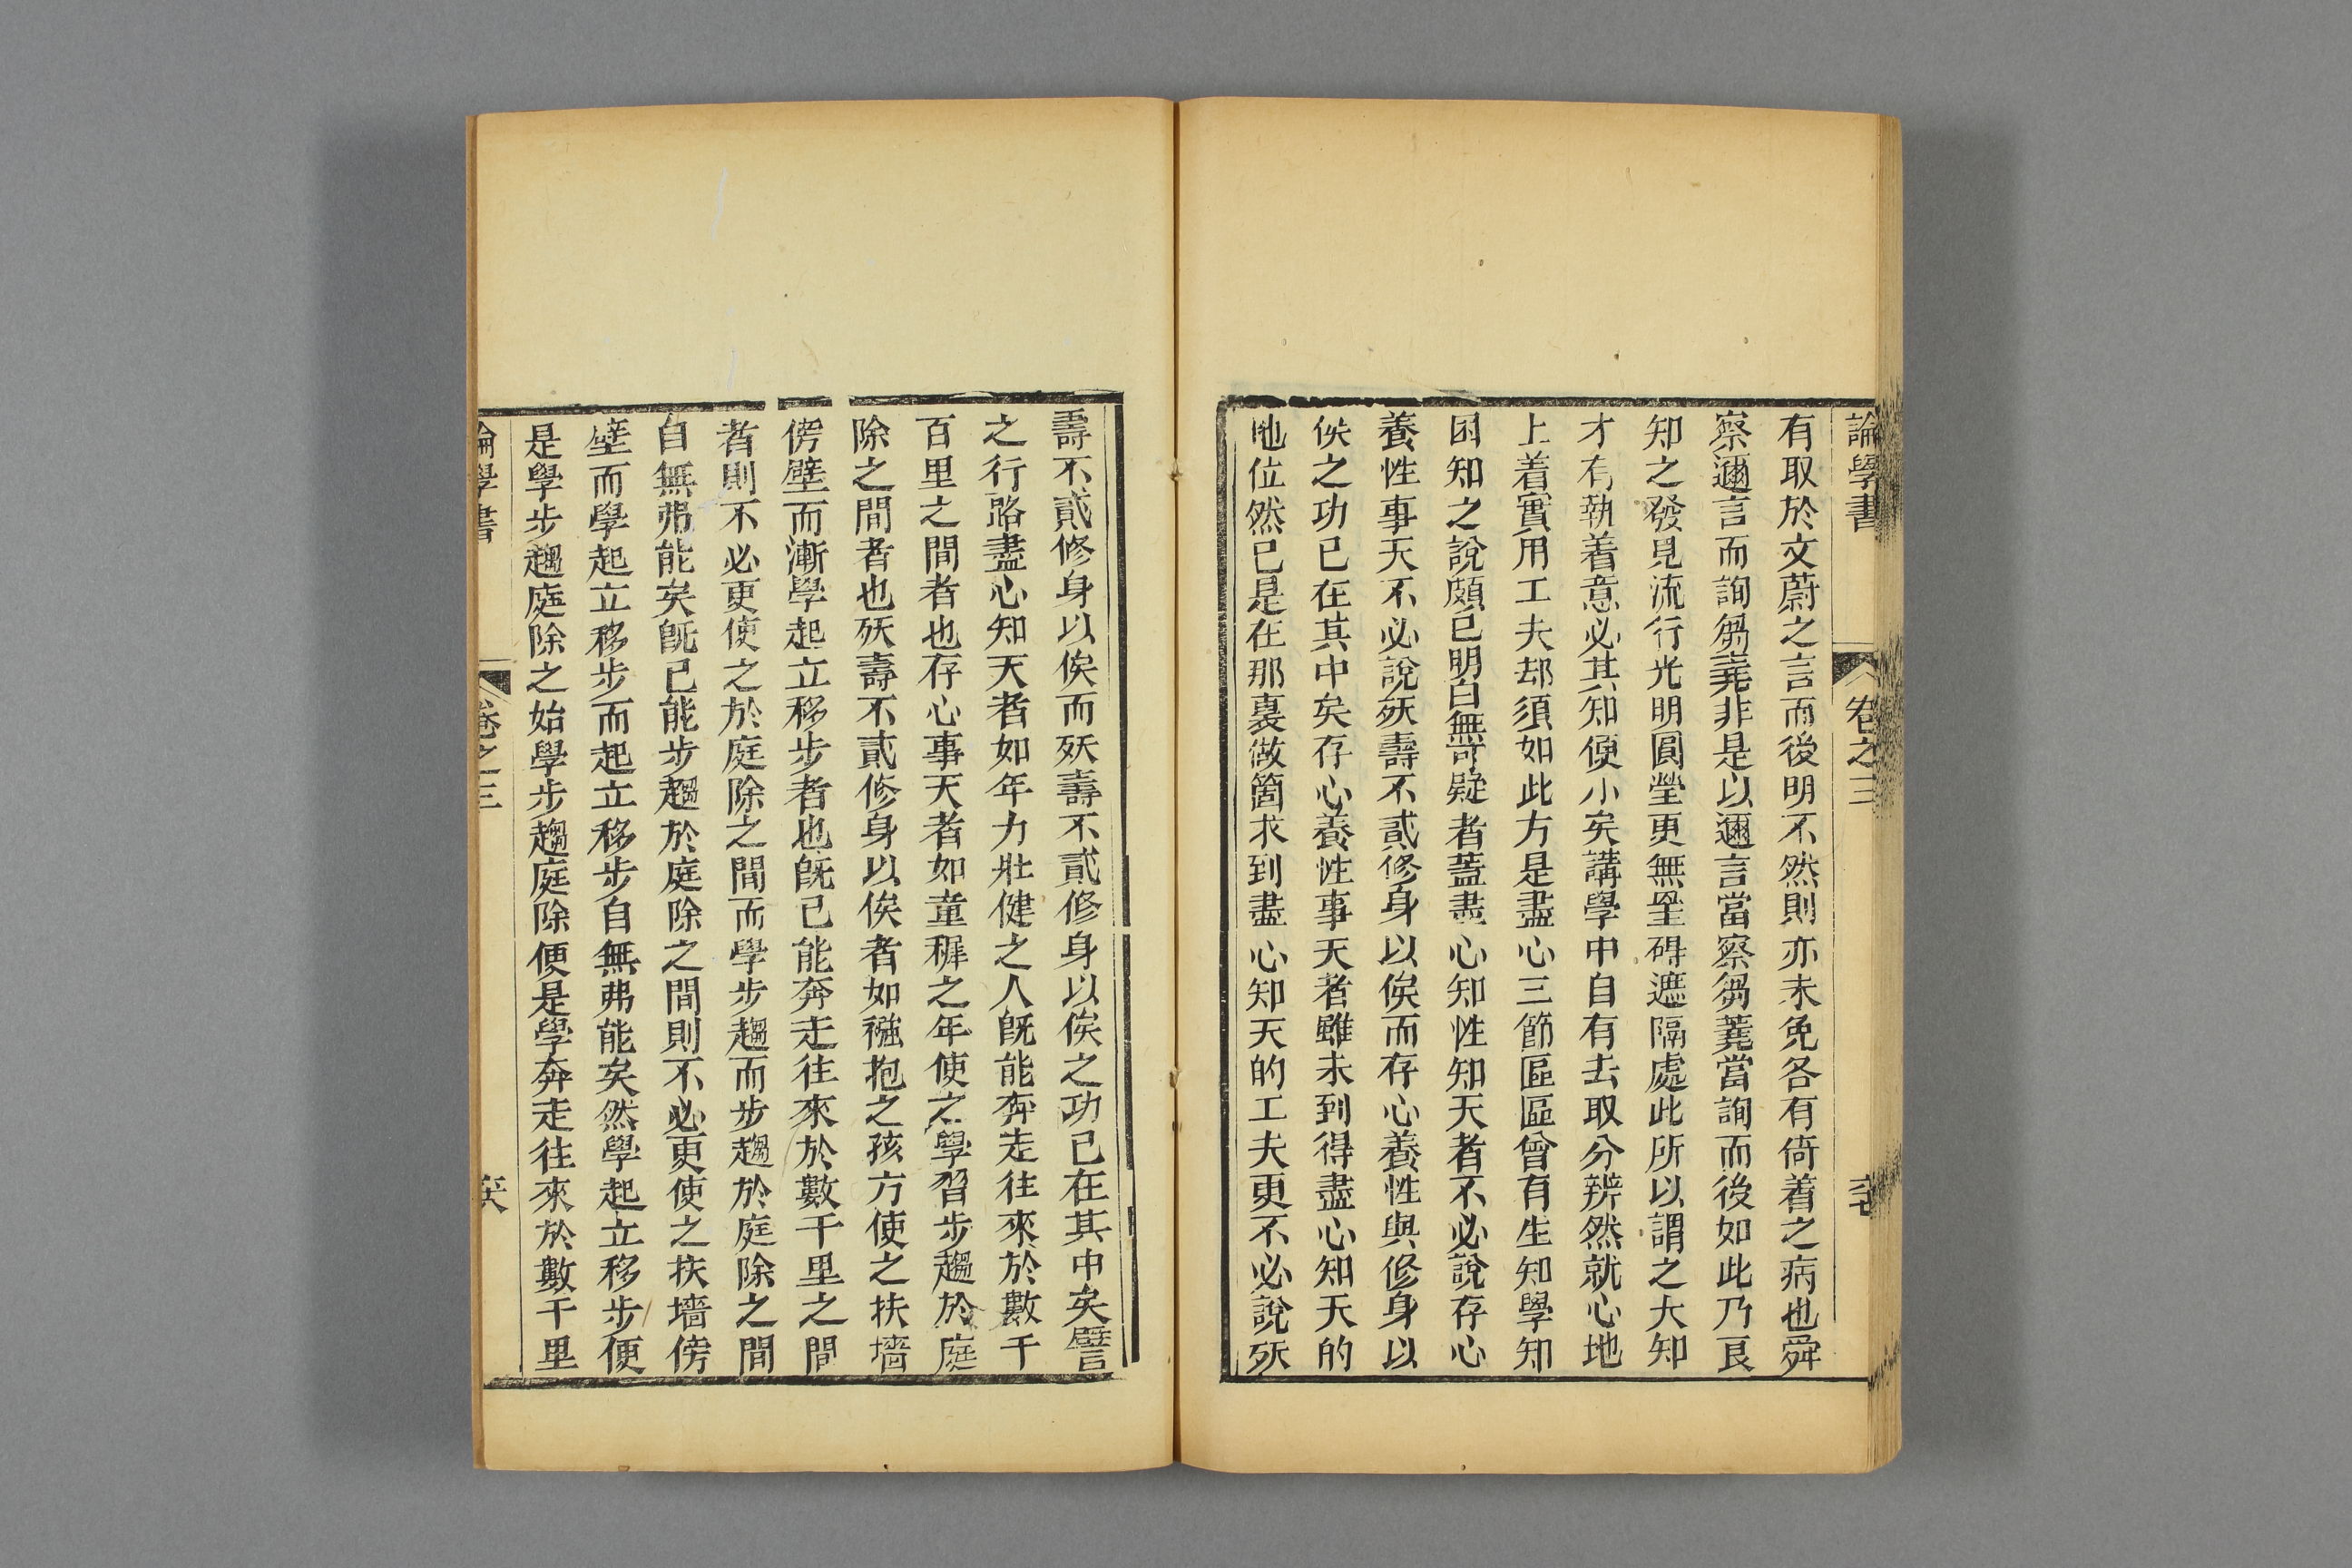 論學書 卷之三
有取於文蔚之言而後明不然則亦未免各有倚着之病也舜
察邇言而詢芻蕘非是以邇言當察芻蕘當詢而後如此乃良
知之發見流行光明圓瑩更無罣碍遮隔處此所以謂之大知
才有執着意必其知便小矣講學中自有去取分辨然就心地
上着實用工夫却須如此方是盡心三節區區曾有生知學知
困知之說頗已明白無可疑者蓋盡心知性知天者不必說存心
養性事天不必說殀壽不貳修身以俟而存心養性與修身以
俟之功已在其中矣存心養性事天者雖未到得盡心知天的
地位然已是在那裏做箇求到盡心知天的工夫更不必說殀
壽不貳修身以俟而殀壽不貳修身以俟之功已在其中矣譬
之行路盡心知天者如年力壯健之人旣能奔走往來於數千
百里之間者也存心事天者如童穉之年使之學習步趨於庭
除之間者也殀壽不貳修身以俟者如襁抱之孩方使之扶墻
傍壁而漸學起立移步者也旣已能奔走往來於數千里之間
者則不必更使之於庭除之間而學步趨而步趨於庭除之間
自無弗能矣旣已能步趨於庭除之間則不必更使之扶墻傍
壁而學起立移步而起立移步自無弗能矣然學起立移步便
是學步趨庭除之始學步趨庭除便是學奔走往來於數千里
論學書 卷之三